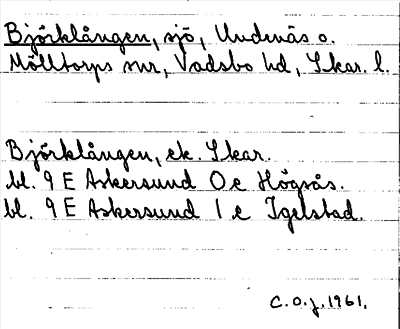 Björklången, sjö, Undenäs o.
Mölltorps snr, Vadsbo hd, Skar. l.
Björklången, ek. Skar.
bl. 9 E Askersund 0 e Högsås.
bl. 9 E Askersund 1 e Igelstad.
C.O.J. 1961.